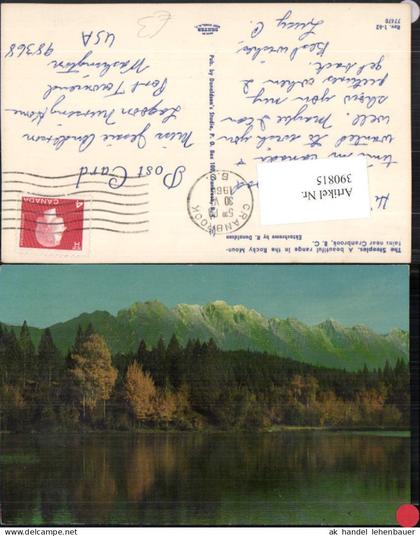 The Steeples. A beautiful range in the Rocky Moun-
tains near Cranbrook, B. C.
Ektachrome by R. Donaldson
time in
wanted to wish you
well. Maybe I can
show you my
pictures when I
get back.
Best wishes,
Lucy C.
Pub. by Donaldson's Studio, P. O. Box
CRANBROOK
B.C.
5 PM
30 V
196
Post Card
4
CANADA
Miss Jessie Anderson
Lagoon Nursing Home
Port Townsend
Washington
USA
98368
£3
DEXTER
Rev. 1-62
77476
Artikel Nr.
390815
ak handel lehenbauer